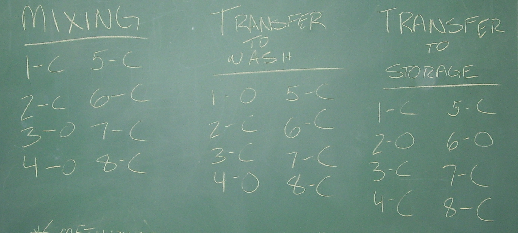 MIXING
1-C 5-C
2-C 6-C
3-O 7-C
4-O 8-C
TRANSFER
TO
WASH
1-O 5-C
2-C 6-C
3-C 7-C
4-O 8-C
TRANSFER
TO
STORAGE
1-C 5-C
2-O 6-O
3-C 7-C
4-C 8-C